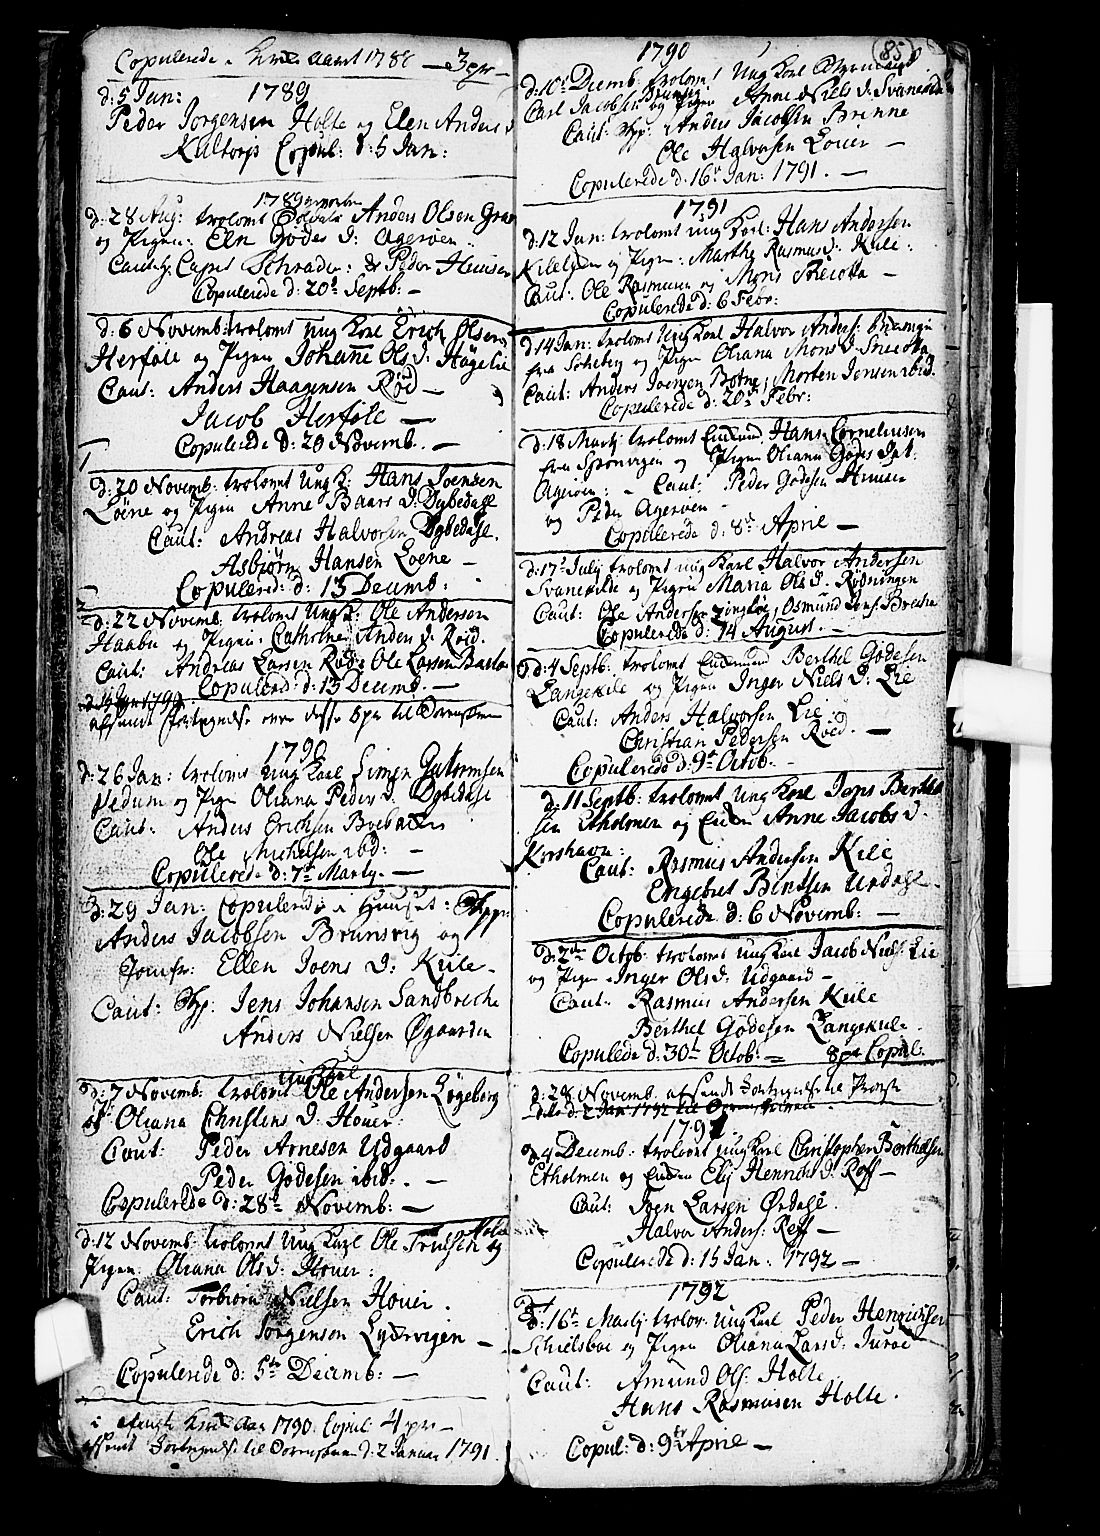 Copulerede i Kirke Aaret 1788 — 3 pr —
1789
d: 5 Jan:
Peder Jorgensen Holte og Elen Anders D
Kultorp Copul: d: 5 Jan:
1789
d: 28 Aug: trolovet Anders Olsen
og Pigen: Eln Godes D: Agerøen
Caut: Capt Schrader: & Peder Huusen
Copulerede d: 20t Septb: —
d: 6 Novemb: trolovet ung Karl Erich Olsen
Herføle og Pigen Johanne Ols D: Høgelie
Caut: Anders Haagensen Rød —
Jacob Herføle —
Copulerede d: 29 Novemb. —
d: 20 Novemb: trolovet ung K: Hans Joensen
Løene og Pigen Anne Baars D: Dybedahl
Caut: Andreas Halvorsen Dybedahl.
Asbjørn Hansen Loene —
Copulered: d: 13 Decemb:
d: 22 Novemb: trolovet ung K: Ole Andersen
Haabu og Pigen: Cathrine Anders D: Røid.
Caut: Andreas Larsen Rød: Ole Larsen
Copulered: d: 13 Decemb: —
1790
afsendt fortegnelse over desse 8 pr til
1790
d: 26 Jan: trolovet ung Karl Simen Guttormsen
Vedum og Pigen Oliana Peder D: Dybedahl
Caut: Anders Erichsen Boebacken
Ole Michelsen ibid: —
Copulerede d: 7t Marty. —
d: 29 Jan: Copulerede i Huuset: Skpr:
Anders Jacobsen Brunsvig og
Jomfr: Ellen Joens D: Kiile —
Caut: Skp: Jens Johansen Sandbrecke
Anders Nielsen Øgaarden
ung Karl
d: 7 Novemb: trolovet Ole Andersen Løgeborg
og Oliana Christens D: Houer:
Caut: Peder Arnesen Udgaard
Peder Godesen ibid: —
Copulerede d: 28t Novemb: —
d: 12 Novemb: trolovet ung Karl Ole Trulsen og
Pigen Oliana Ols D: Houer:
Caut: Torbiorn Nielsen Houer.
Erich Jorgensen Lydervigen —
Copulerede d: 5te Decemb: —
i afvigte Kirke Aar 1790. Copul: 4 pr —
afsendt Fortegnelse til d: 2 Januar 1791.
85
1790
d: 10t Decemb. trolovet ung Karl
Carl Jacobsen og Pigen Anne Niels D: Svanekile
Caut: Skp: Anders Jacobsen Brinne
Ole Halvorsen Louer —
Copulerede d: 16t Jan: 1791. —
1791
d: 12 Jan: trolovet ung Karl: Hans Andersen
og Pigen: Marthe Rasmus D: Kile:
Caut: Ole Rasmusen og Mons Snecotta —
Copulerede d: 6 Febr:
d: 14 Jan: trolovet ung Karl Halvor Anders:
fra og Pigen Oliana Mons D: Snecotta
Caut: Anders Joensen Botne, Morten Jensen ibid.
Copulerede d: 20t Febr:
d: 18 Martj trolovet Enkemd. Hans Cornelinsen
fra og Pigen Oliana Godes Dat:
Agerøen: — Caut: Peder Godesen Huusen
og Peder Agerøen —
Copulerede d: 8t April —
d: 17t July trolovet ung Karl Halvor Andersen
Svanekile og Pigen Maria Ols D. Rødningen
Caut: Ole Andersen, Osmund Jens: Breche
Copulerede d: 14 August. —
d: 4 Septb: trolovet Enkemand Berthel Godesen
Langekile og Pigen Inger Niels D: Lie
Caut: Anders Halvorsen Lie
Christian Pedersen Røed. —
Copulerede d: 9t Octob. —
d: 11 Septb: trolovet ung Karl Jens Berthel
sen Etholmen og Enken Anne Jacobs D.
Korshavn:
Caut: Rasmus Andersen Kile
Engebret Bentsen Urdahl —
Copulerede d: 6 Novemb: —
d: 2den Octob: trolovet ung Karl Jacob Niels: Lie
og Pigen Inger Ols D: Udgaard —
Caut: Rasmus Andersen Kiile
Berthel Godesen Langekiile
Copulede d: 30t Octob: = 8 par Copul:
d: 28 Novemb: afsendt Fortegnelse til Provst
d: 2 Jan 1792 til
1791
d: 4 Decemb: trolovet ung Karl Christopher Berthelsen
Etholmen og Enken Elij Henrichs D: Røff —
Caut: Iven Larsen Ørdahl.
Halvor Anders: Reff —
Copulerede d: 15 Jan: 1792 —
1792
d: 16t Martj trolov: ung Karl Peder Henrichsen
Schielsboe og Pigen Oliana Lars D: Juroe
Caut: Amund Ols: Holte,
Hans Rasmusen Holte.
Copul: d: 9te April —